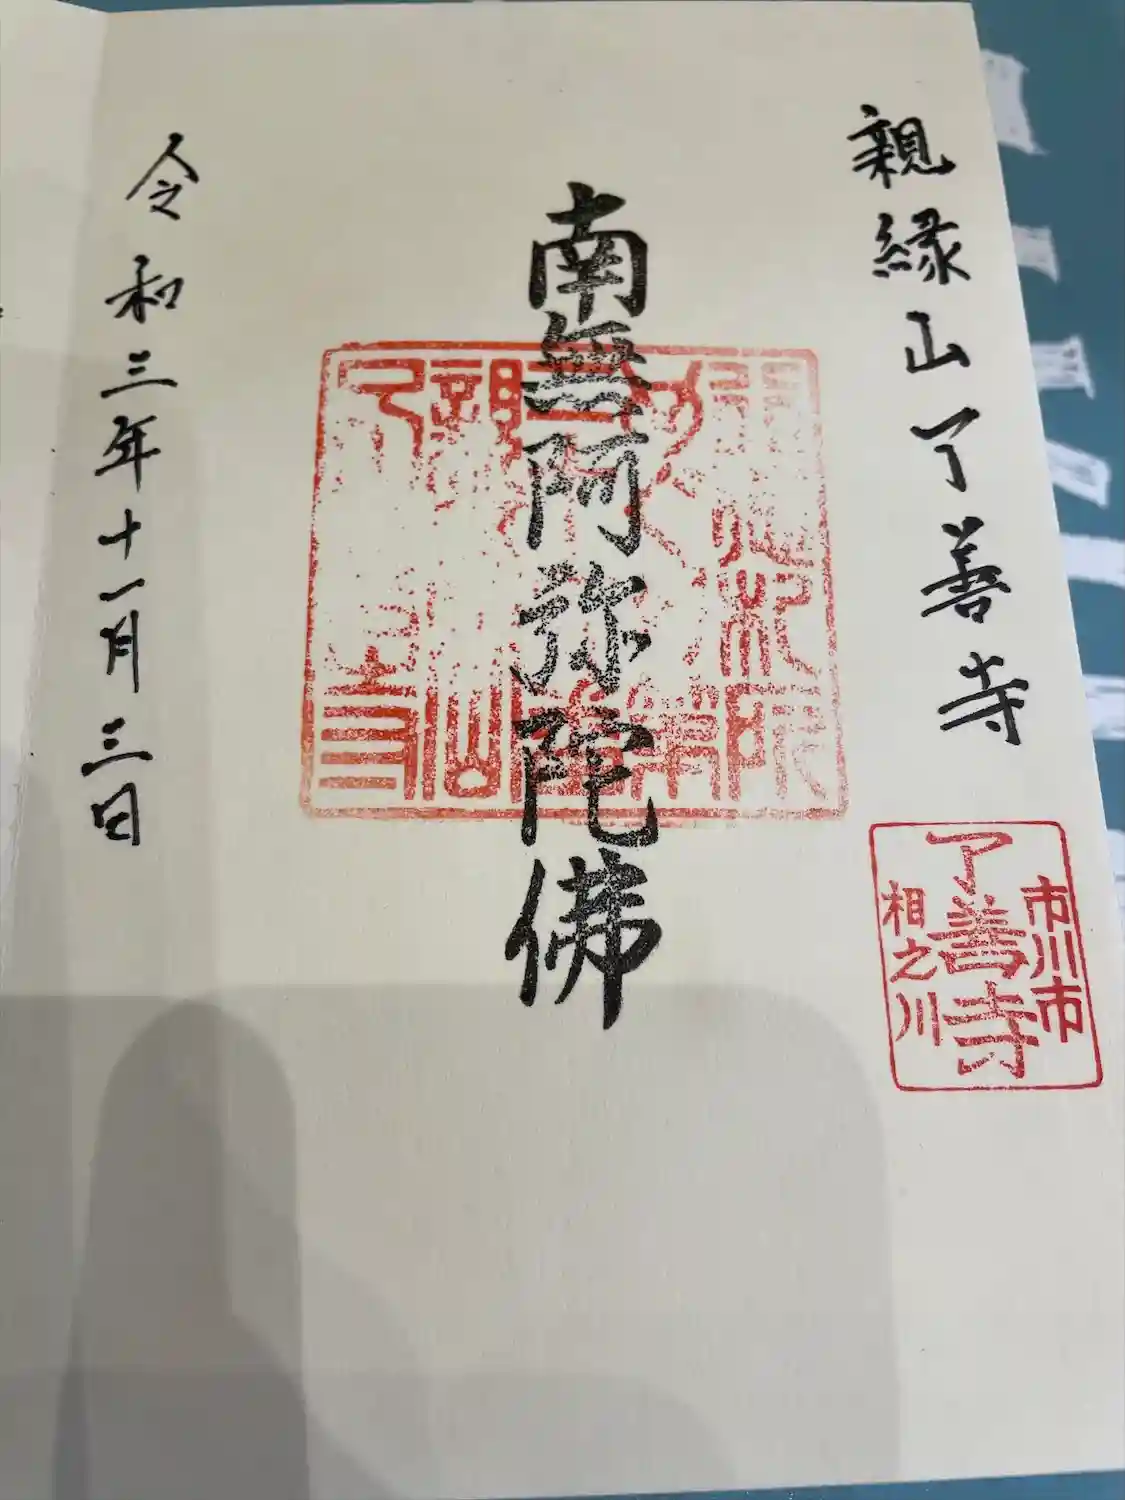 親縁山了善寺
市川市
了善寺
相之川
南無阿弥陀佛
令和三年十一月三日